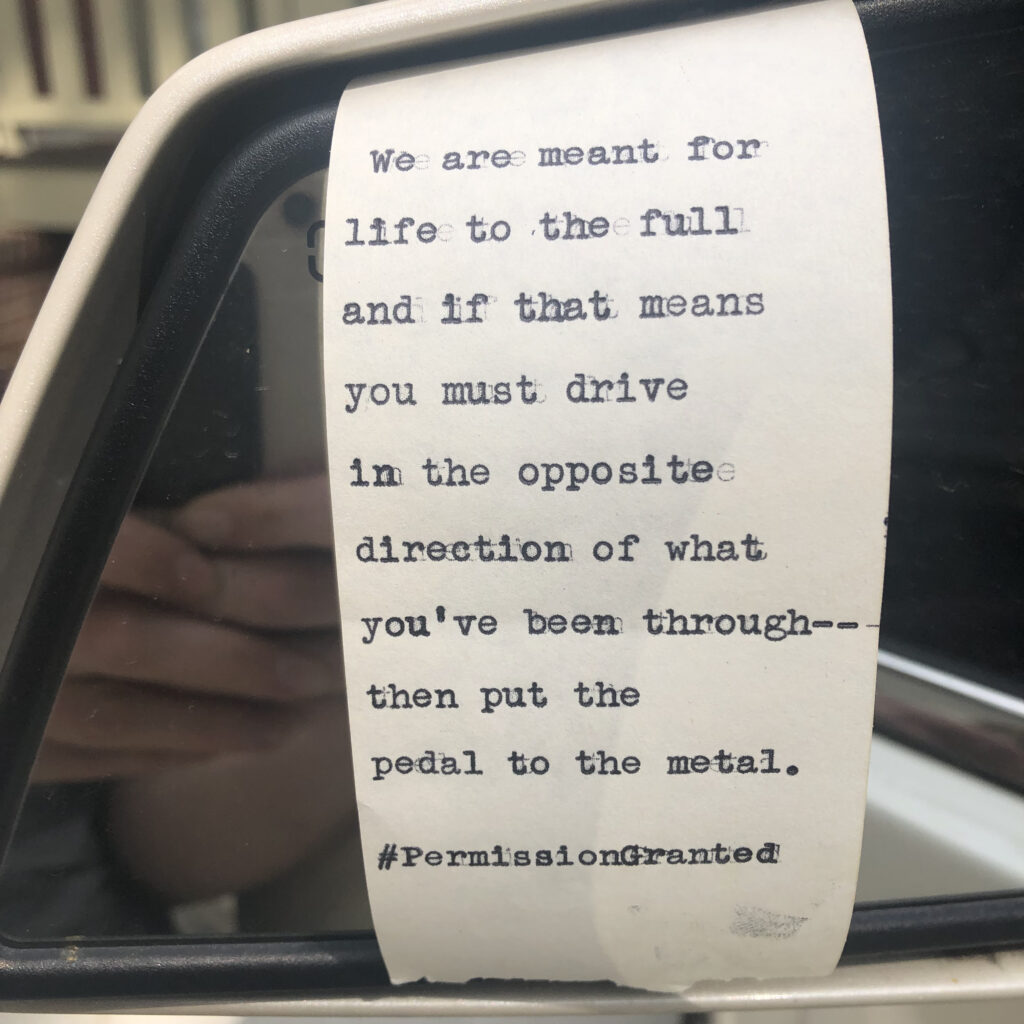 We are meant for
life to the full
and if that means
you must drive
in the opposite
direction of what
you've been through---
then put the
pedal to the metal.
#PermissionGranted